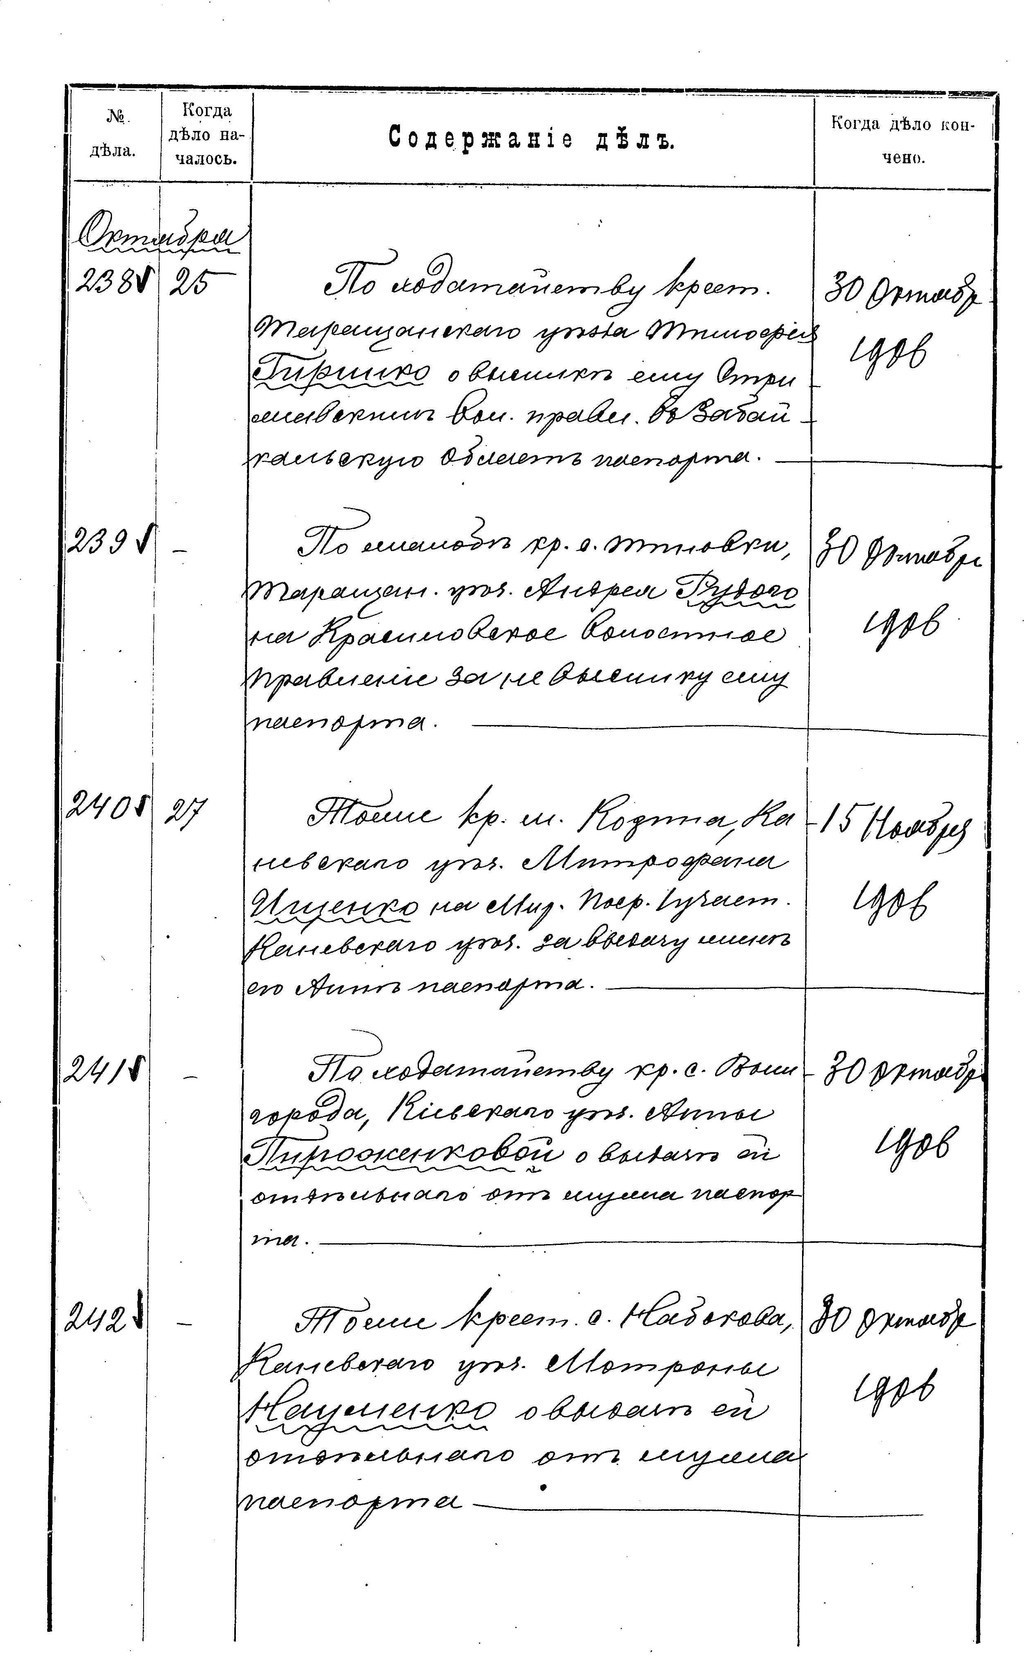 № дѣла.
Когда дѣло на-
чалось.
Содержаніе дѣлъ.
Когда дѣло кон-
чено.
Октября
238 25 По ходатайству крест. 30 Октябр
Таращанскаго уѣзда Тимофея 1906
Гиршко о высылкѣ ему Стри
жавскимъ Вол. правл. въ Забай-
кальскую область паспорта.
239 - По жалобѣ кр. с. Тиновки, 30 Октябр
Таращан. уѣз. Андрея Рудого 1906
на Красиловское волостное
правленіе за не высылку ему
паспорта.
240 27 Тоже кр. м. Козина, Ка- 15 Ноября
невскаго уѣз. Митрофана 1906
Ищенко на Мир. Поср. 1 участ.
Каневскаго уѣз. за выдачу женѣ
его Аннѣ паспорта.
241 - По ходатайству кр. с. Выш- 30 Октябр
города, Кіевскаго уѣз. Анны 1906
Пироженковой о выдачѣ ей
отдѣльнаго отъ мужа паспор
та.
242 - Тоже крест. с. Набокова, 30 Октябр
Каневскаго уѣз. Мотроны 1906
Науменко о выдачѣ ей
отдѣльнаго отъ мужа
паспорта